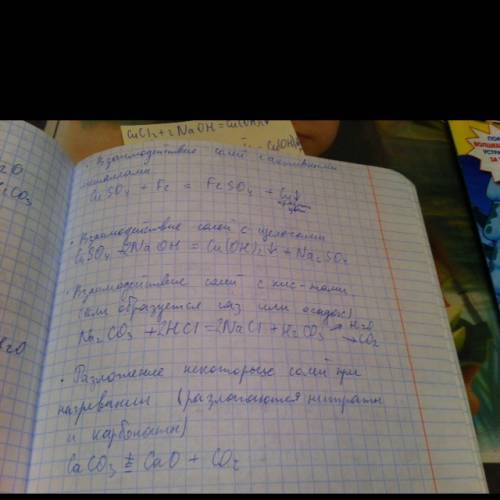 CuCl₂ + 2NaOH = Cu(OH)₂↓
Cu(OH)₂
• Взаимодействие солей с активными
металлами.
CuSO₄ + Fe = FeSO₄ + Cu↓
• Взаимодействие солей с щелочами
CuSO₄ + 2NaOH = Cu(OH)₂↓ + Na₂SO₄
• Взаимодействие солей с кис-тами.
(если образуется газ или осадок)
Na₂CO₃ + 2HCl = 2NaCl + H₂CO₃ → H₂O
→ CO₂
• Разложение некоторых солей при
нагревании (разлагаются нитраты
и карбонаты)
CaCO₃ t= CaO + CO₂